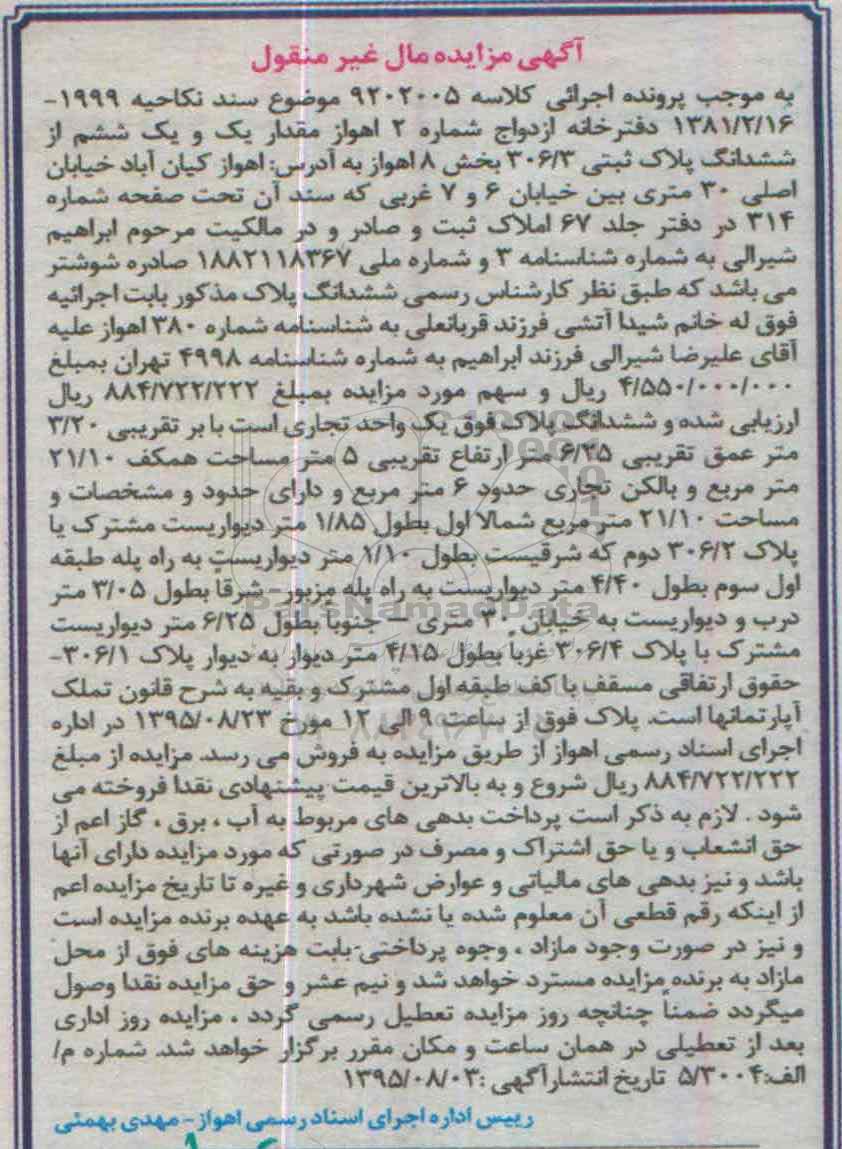 آگهی مزایده مال غیر منقول
به موجب پرونده اجرائی کلاسه ۹۲۰۲۰۰۵ موضوع سند نکاحیه ۱۹۹۹-
۱۳۸۱/۲/۱۶ دفترخانه ازدواج شماره ۲ اهواز مقدار یک و یک ششم از
ششدانگ پلاک ثبتی ۳۰۶/۳ بخش ۸ اهواز به آدرس: اهواز کیان آباد خیابان
اصلی ۳۰ متری بین خیابان ۶ و ۷ غربی که سند آن تحت صفحه شماره
۳۱۴ در دفتر جلد ۶۷ املاک ثبت و صادر و در مالکیت مرحوم ابراهیم
شیرالی به شماره شناسنامه ۳ و شماره ملی ۱۸۸۲۱۱۸۳۶۷ صادره شوشتر
می باشد که طبق نظر کارشناس رسمی ششدانگ پلاک مذکور بابت اجرائیه
فوق له خانم شیدا آتشی فرزند قربانعلی به شناسنامه شماره ۳۸۰ اهواز علیه
آقای علیرضا شیرالی فرزند ابراهیم به شماره شناسنامه ۴۹۹۸ تهران بمبلغ
۴/۵۵۰/۰۰۰/۰۰۰ ریال و سهم مورد مزایده بمبلغ ۸۸۴/۷۲۲/۲۲۲ ریال
ارزیابی شده و ششدانگ پلاک فوق یک واحد تجاری است با بر تقریبی ۳/۲۰
متر عمق تقریبی ۶/۲۵ متر ارتفاع تقریبی ۵ متر مساحت همکف ۲۱/۱۰
متر مربع و بالکن تجاری حدود ۶ متر مربع و دارای حدود و مشخصات و
مساحت ۲۱/۱۰ متر مربع شمالا اول بطول ۱/۸۵ متر دیواریست مشترک یا
پلاک ۳۰۶/۲ دوم که شرقیست بطول ۱/۱۰ متر دیواریست به راه پله طبقه
اول سوم بطول ۴/۴۰ متر دیواریست به راه پله مزبور- شرقا بطول ۳/۰۵ متر
درب و دیواریست به خیابان ۳۰ متری – جنوباً بطول ۶/۲۵ متر دیواریست
مشترک با پلاک ۳۰۶/۴ غرباً بطول ۴/۱۵ متر دیوار به دیوار پلاک ۳۰۶/۱-
حقوق ارتفاقی مسقف با کف طبقه اول مشترک و بقیه به شرح قانون تملک
آپارتمانها است. پلاک فوق از ساعت ۹ الی ۱۲ مورخ ۱۳۹۵/۰۸/۲۳ در اداره
اجرای اسناد رسمی اهواز از طریق مزایده به فروش می رسد. مزایده از مبلغ
۸۸۴/۷۲۲/۲۲۲ ریال شروع و به بالاترین قیمت پیشنهادی نقدا فروخته می
شود . لازم به ذکر است پرداخت بدهی های مربوط به آب ، برق ، گاز اعم از
حق انشعاب و یا حق اشتراک و مصرف در صورتی که مورد مزایده دارای آنها
باشد و نیز بدهی های مالیاتی و عوارض شهرداری و غیره تا تاریخ مزایده اعم
از اینکه رقم قطعی آن معلوم شده یا نشده باشد به عهده برنده مزایده است
و نیز در صورت وجود مازاد ، وجوه پرداختی بابت هزینه های فوق از محل
مازاد به برنده مزایده مسترد خواهد شد و نیم عشر و حق مزایده نقدا وصول
میگردد ضمناً چنانچه روز مزایده تعطیل رسمی گردد ، مزایده روز اداری
بعد از تعطیلی در همان ساعت و مکان مقرر برگزار خواهد شد. شماره م/
الف:۵/۳۰۰۴ تاریخ انتشارآگهی :۱۳۹۵/۰۸/۰۳
رییس اداره اجرای اسناد رسمی اهواز - مهدی بهمئی
ParsNamadData